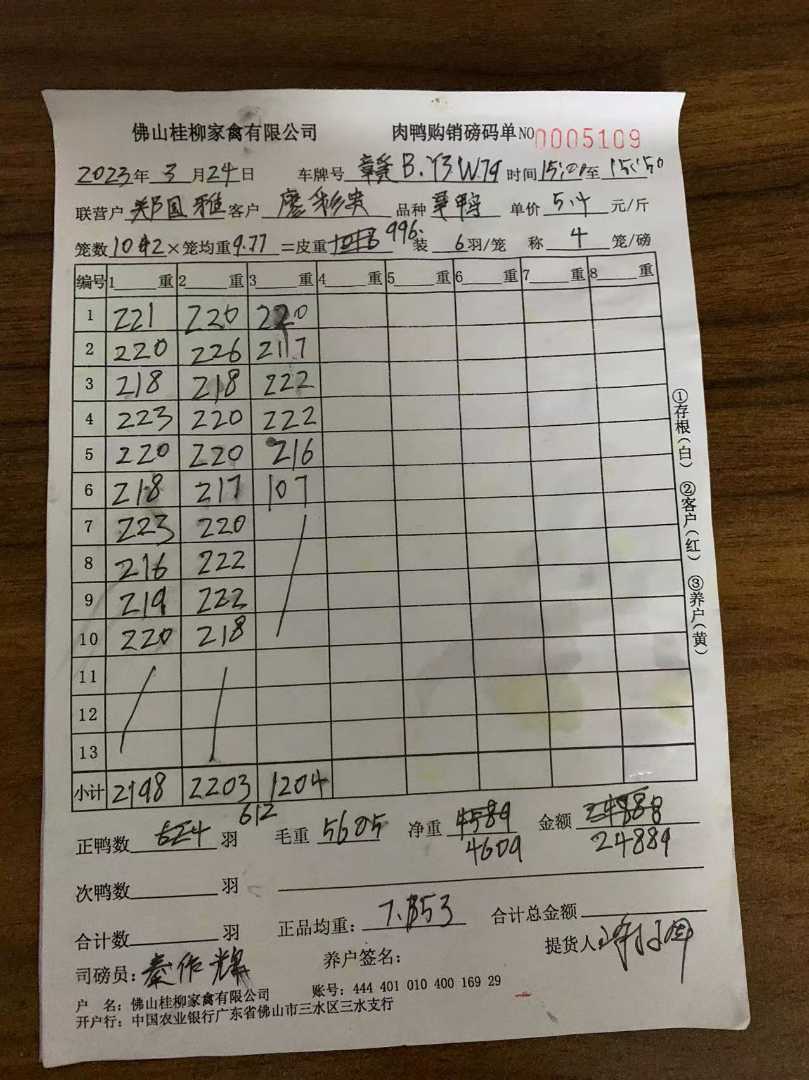 佛山桂柳家禽有限公司 肉鸭购销磅码单 NO 0005109
2023年 3月24日 车牌号 赣B.Y3W79 时间15:00至15:50
联营户 郑国雅 客户 品种 草鸭 单价 5.4 元/斤
笼数 102×笼均重9.77=皮重 996. 装 6羽/笼 称 4 笼/磅
编号 1 重 2 重 3 重 4 重 5 重 6 重 7 重 8 重
1 221 220 220
2 220 226 217
3 218 218 222
4 223 220 222
5 220 220 216
6 218 217 107
7 223 220
8 216 222
9 219 222
10 220 218
11
12
13
小计 2198 2203 1204
正鸭数 624 612 羽 毛重 5605 净重 4589 4609 金额 24889
次鸭数 羽
合计数 羽 正品均重: 合计总金额
司磅员: 秦作辉 养户签名: 提货人
户 名: 佛山桂柳家禽有限公司 账号: 444 401 010 400 169 29
开户行: 中国农业银行广东省佛山市三水区三水支行
①存根(白) ②客户(红) ③养户(黄)